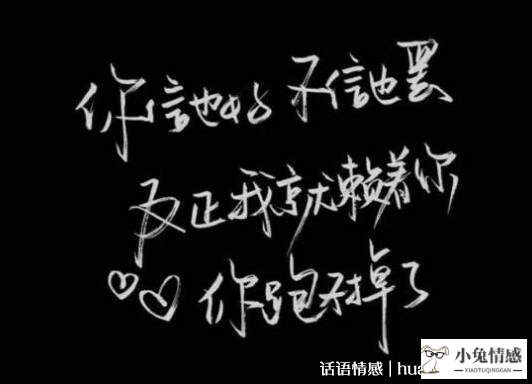 你信也好 不信也罢
反正我就赖着你
♡♡ 你跑不掉了
话语情感 | hua
小兔情感
XIAOTUQINGGAN